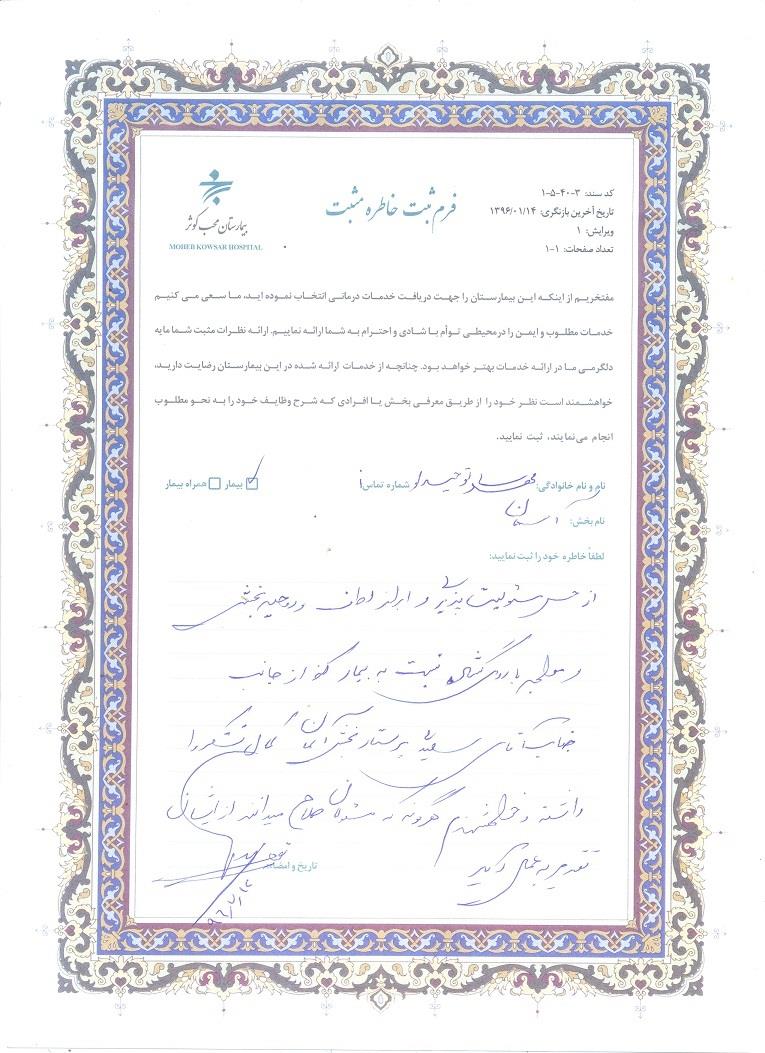 کد سند: ۳-۴۰-۵-۱
تاریخ آخرین بازنگری: ۱۳۹۶/۰۱/۱۴
ویرایش: ۱
تعداد صفحات: ۱-۱
فرم ثبت خاطره مثبت
بیمارستان محب کوثر
MOHEB KOWSAR HOSPITAL
مفتخریم از اینکه این بیمارستان را جهت دریافت خدمات درمانی انتخاب نموده اید، ما سعی می کنیم
خدمات مطلوب و ایمن را در محیطی توأم با شادی و احترام به شما ارائه نماییم. ارائه نظرات مثبت شما مایه
دلگرمی ما در ارائه خدمات بهتر خواهد بود. چنانچه از خدمات ارائه شده در این بیمارستان رضایت دارید،
خواهشمند است نظر خود را از طریق معرفی بخش یا افرادی که شرح وظایف خود را به نحو مطلوب
انجام می‌نمایند، ثبت نمایید.
نام و نام خانوادگی: شماره تماس: بیمار همراه بیمار
نام بخش: آسمان
لطفاً خاطره خود را ثبت نمایید:
از حس مسئولیت پذیری و ابراز لطف و روحیه بخشی
و با روی گشاده نسبت به بیمار از جانب
جناب آقای پرستار بخش آسمان کمال تشکر را
داشته و خواهشمندم هرگونه که مسئولان صلاح میدانند از ایشان
تقدیر به عمل آید
تاریخ و امضاء